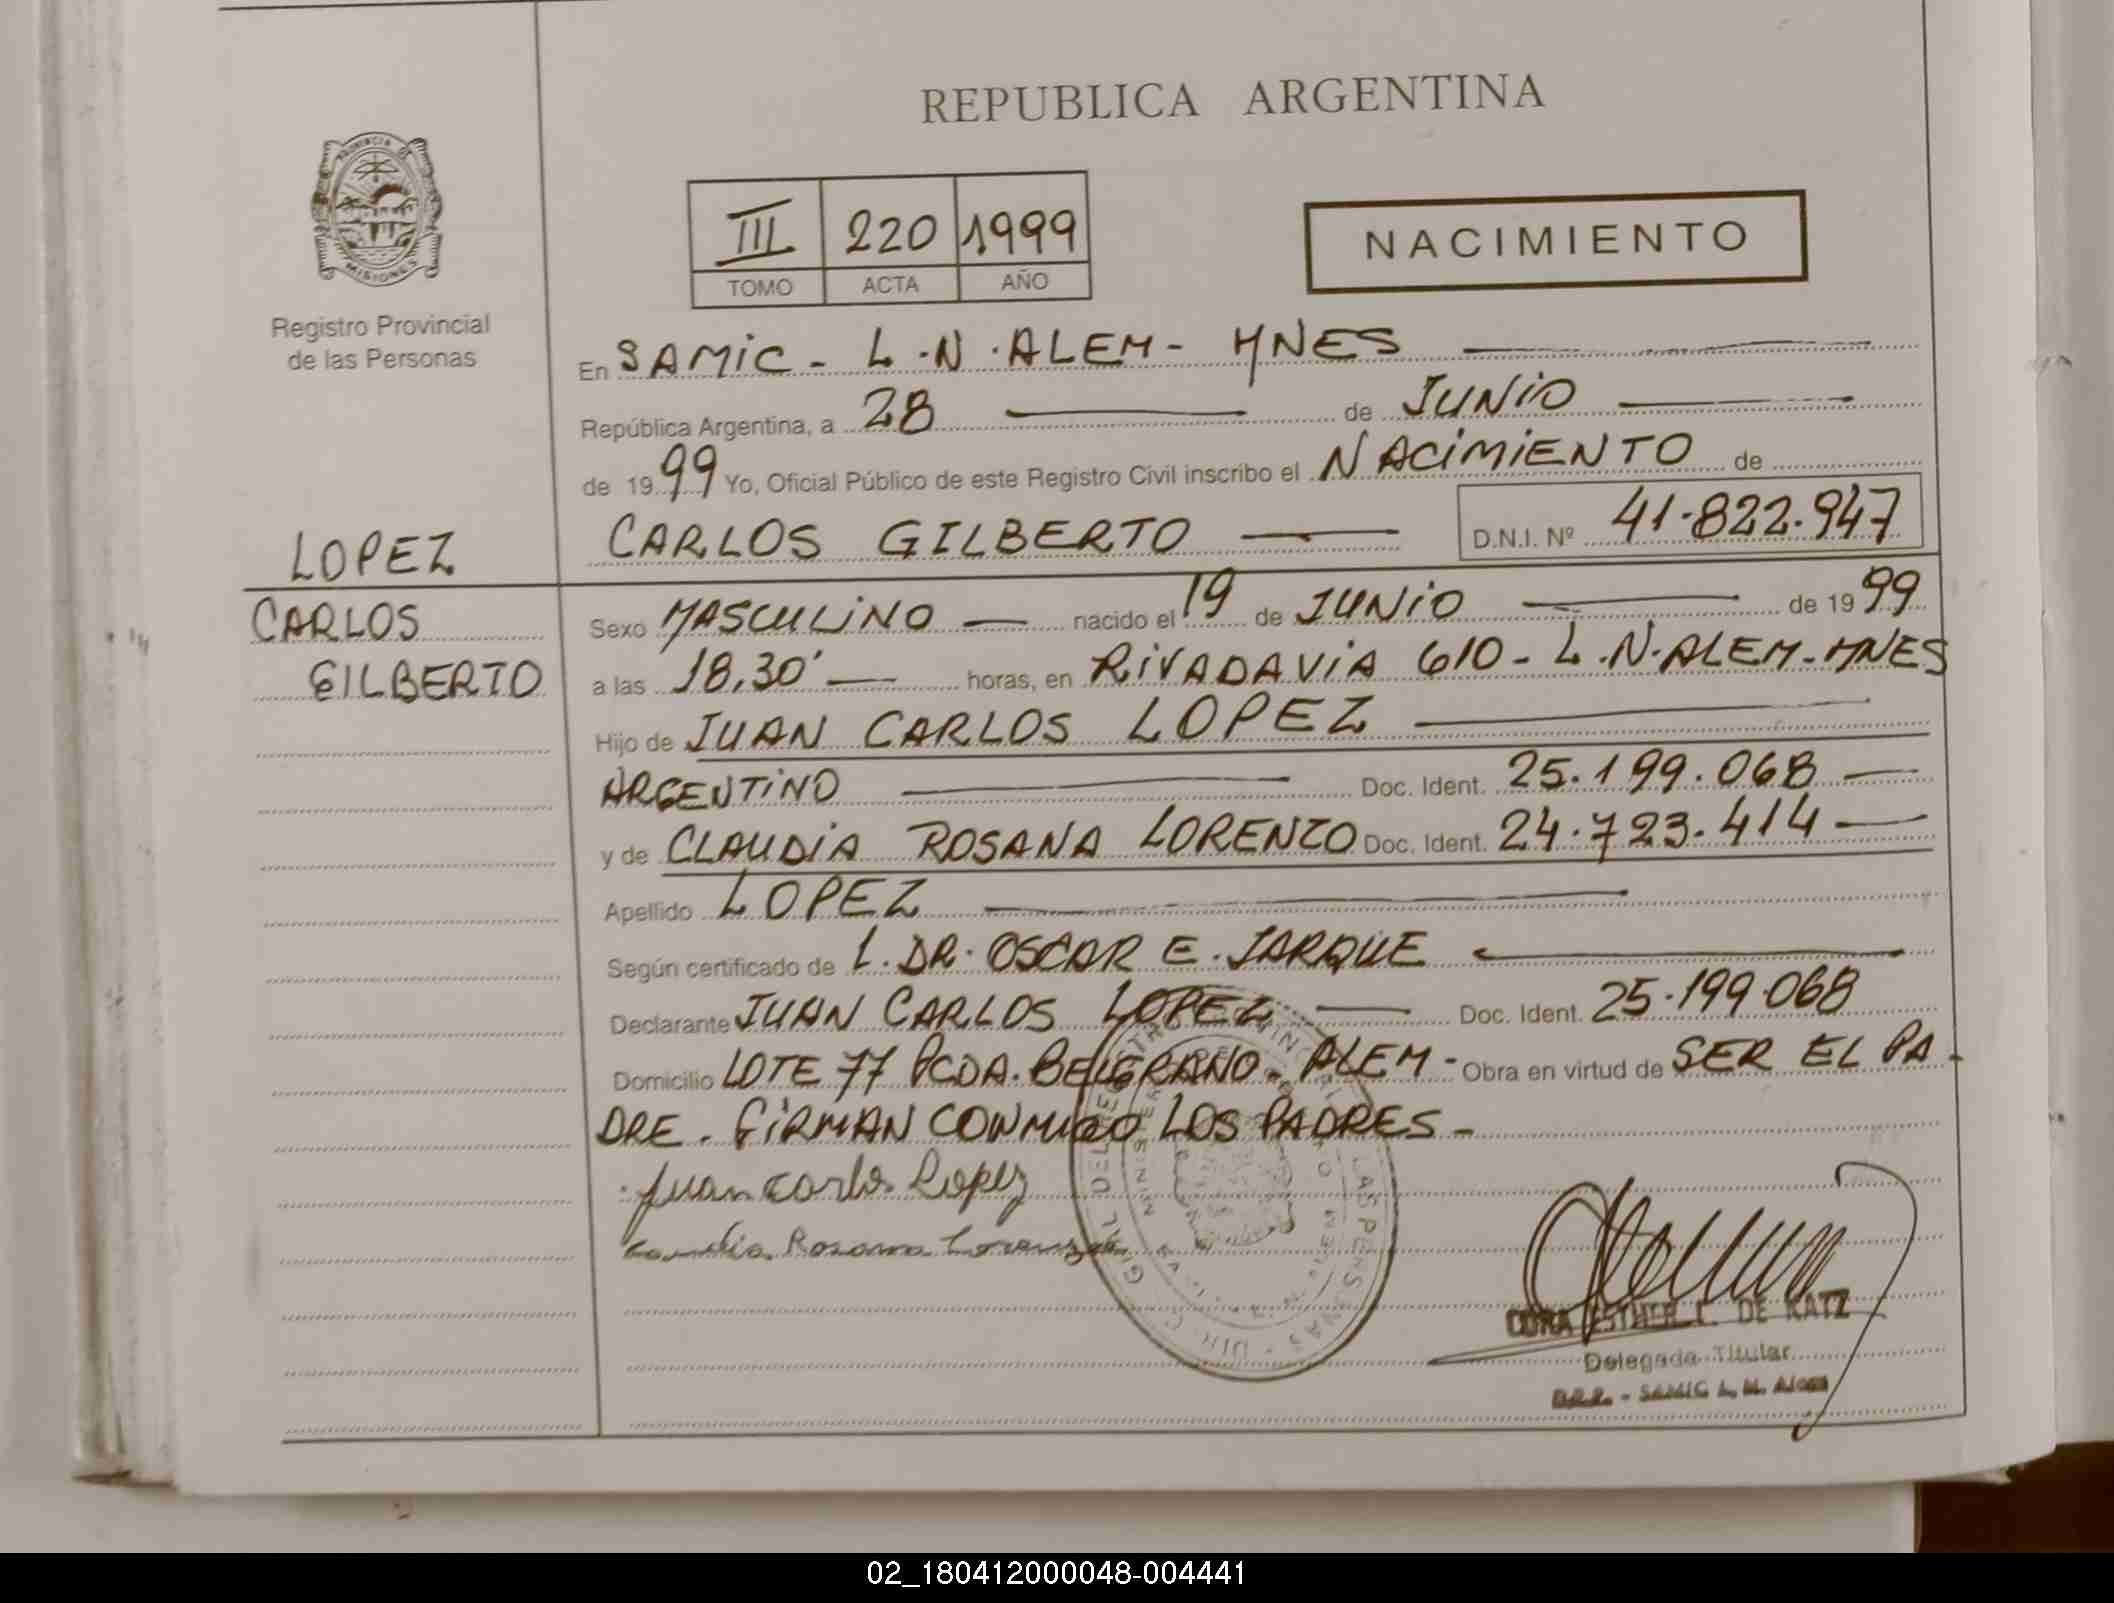 REPUBLICA ARGENTINA
PROVINCIA DE
MISIONES
Registro Provincial
de las Personas
III 220 1999
TOMO ACTA AÑO
NACIMIENTO
En SAMIC - L.N. ALEM - MNES
República Argentina, a 28 de JUNIO
de 1999 Yo, Oficial Público de este Registro Civil inscribo el NACIMIENTO de
CARLOS GILBERTO D.N.I. Nº 41.822.947
LOPEZ
CARLOS
GILBERTO
Sexo MASCULINO nacido el 19 de JUNIO de 1999
a las 18,30' horas, en RIVADAVIA 610 - L.N. ALEM - MNES
Hijo de JUAN CARLOS LOPEZ
ARGENTINO Doc. Ident. 25.199.068
y de CLAUDIA ROSANA LORENZO Doc. Ident. 24.723.414
Apellido LOPEZ
Según certificado de L. DR. OSCAR E. JARQUE
Declarante JUAN CARLOS LOPEZ Doc. Ident. 25.199.068
Domicilio LOTE 77 PCDA. BELGRANO - ALEM - Obra en virtud de SER EL PA-
DRE. FIRMAN CONMIGO LOS PADRES -
Juan Carlos Lopez
Rosana Lorenzo
ESTHER C. DE KATZ
Delegada Titular
02_180412000048-004441